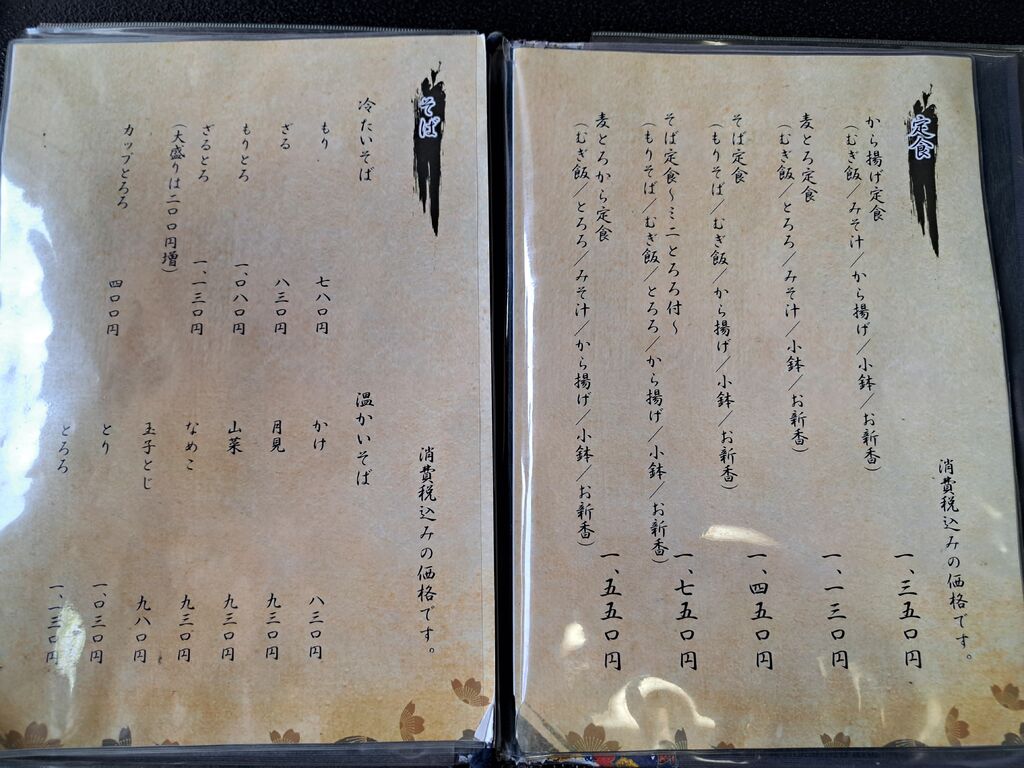 定食
消費税込みの価格です。
から揚げ定食
一、三五〇円
（むぎ飯／みそ汁／から揚げ／小鉢／お新香）
麦とろ定食
一、一三〇円
（むぎ飯／とろろ／みそ汁／小鉢／お新香）
そば定食
一、四五〇円
（もりそば／むぎ飯／から揚げ／小鉢／お新香）
そば定食～ミニとろろ付～
一、七五〇円
（もりそば／むぎ飯／とろろ／から揚げ／小鉢／お新香）
麦とろから定食
一、五五〇円
（むぎ飯／とろろ／みそ汁／から揚げ／小鉢／お新香）
そば
消費税込みの価格です。
冷たいそば
もり
七八〇円
ざる
八三〇円
もりとろ
一、〇八〇円
ざるとろ
一、一三〇円
（大盛りは二〇〇円増）
カップとろろ
四〇〇円
温かいそば
かけ
八三〇円
月見
九三〇円
山菜
九三〇円
なめこ
九三〇円
玉子とじ
九八〇円
とり
一、〇三〇円
とろろ
一、一三〇円